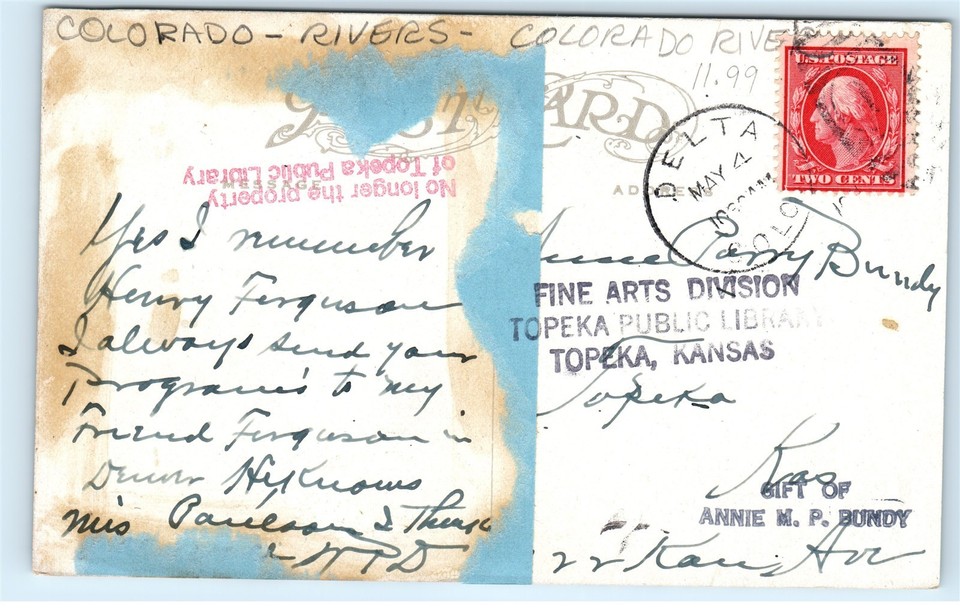 COLORADO - RIVERS - COLORADO RIVE
11.99
POST CARD
U.S. POSTAGE
TWO CENTS
DELTA
MAY 4
1030AM
COLO
No longer the property
of Topeka Public Library
MESSAGE
ADDRESS
Yes I remember
Henry Ferguson
I always send your
Programs to my
Friend Ferguson in
Denver He Knows
Mrs Paulson I think
W P D
Parry Bundy
FINE ARTS DIVISION
TOPEKA PUBLIC LIBRARY
TOPEKA, KANSAS
Topeka
Kas
GIFT OF
ANNIE M. P. BUNDY
Kans Ave